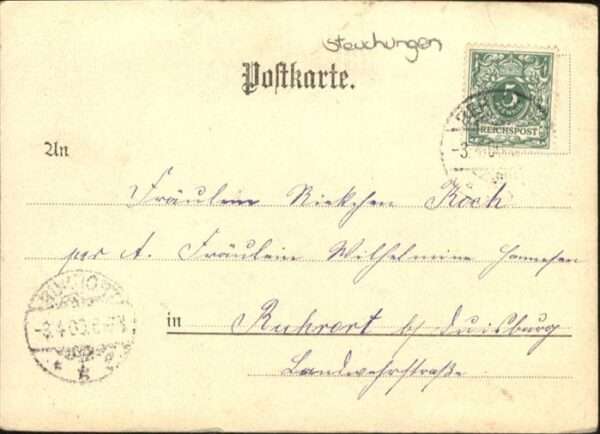 steuchungen
Postkarte.
5
REICHSPOST
An
Fräulein Riekchen Koch
per A. Fräulein Wilhelmine
in Ruhrort b/ Duisburg
Landwehrstraße